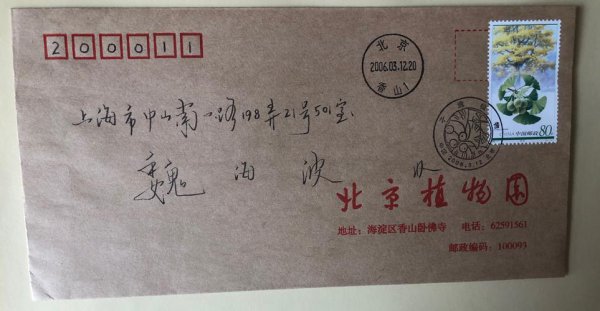 200011
北京
2006.03.12.20
香山1
中国邮政
80
上海市中山南一路198弄21号501室
魏海波 收
北京植物园
地址：海淀区香山卧佛寺 电话：62591561
邮政编码：100093